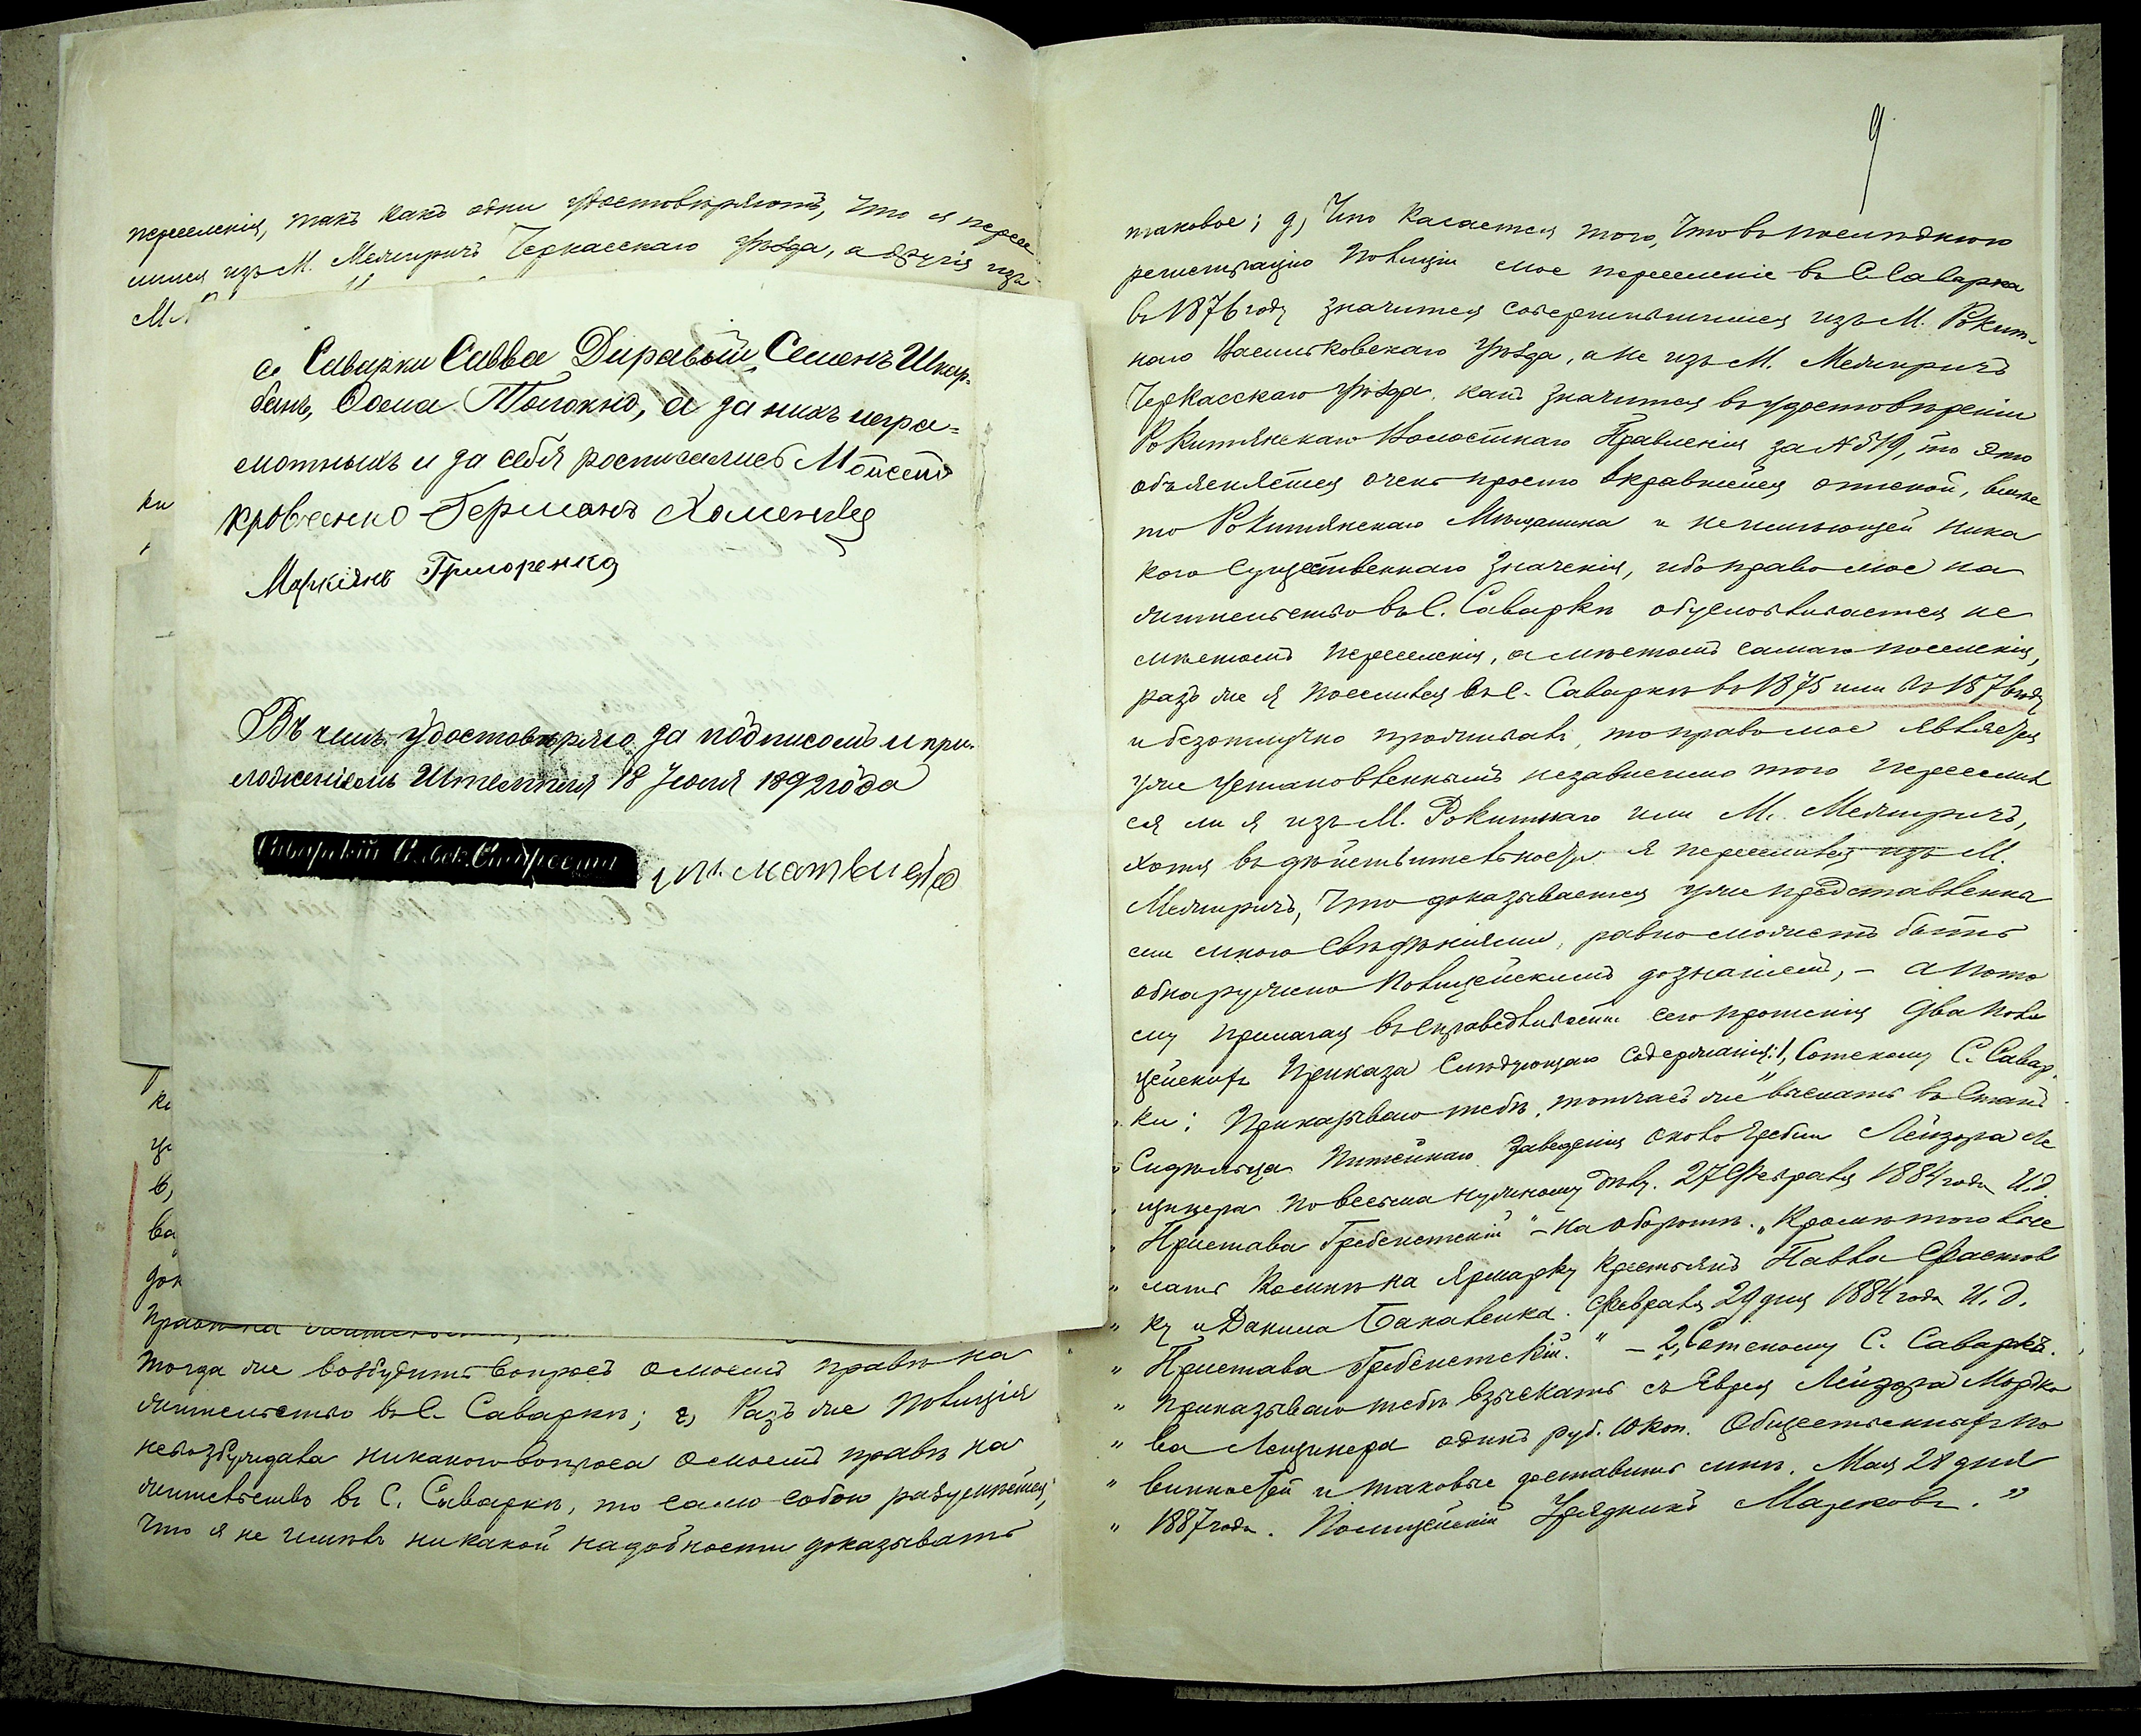 переселенія, такъ какъ одни удостовѣряютъ, что я пересе
лился изъ М. Межиричъ Черкасскаго уѣзда, а другія изъ
с. Саварки Савва Диравый, Семенъ Шкар-
банъ, Фома Толокно, а за нихъ негра-
мотныхъ и за себя росписались Мойсей
Кравченко Германъ Хоменко
Маркіянъ Григоренко
Въ чемъ удостовѣряю за подписомъ и при-
ложеніемъ Штемпеля 18 Іюля 1892 года
Саварскій Сельск. Староста
ки
ка
в,
ва
док
права на
тогда же возбудить вопросъ о моемъ правѣ на
жительство въ С. Саваркѣ; г, Разъ же полиція
невозбуждала никакого вопроса о моемъ правѣ на
жительство въ С. Саваркѣ, то само собою разумѣется,
что я не имѣлъ никакой надобности доказывать
9
таковое; д, Что касается того, что въ послѣднюю
регистрацію полиціи мое переселеніе въ С. Саварка
въ 1876 году значится совершившимся изъ М. Рокит-
наго Васильковскаго уѣзда, а не изъ М. Межиричъ
Черкасскаго уѣзда, какъ значится въ удостовѣреніи
Рокитянскаго Волостнаго Правленія за № 519, то это
объясняется очень просто вкравшейся опиской, вмѣс
то Рокитянскаго Мѣщанина и неимѣющей ника
кого существеннаго значенія, ибо право мое на
жительство въ С. Саваркѣ обусловливается не
мѣстомъ переселенія, а мѣстомъ самаго поселенія,
разъ же я поселился въ С. Саваркѣ въ 1875 или въ 1876 году
и безотлучно проживалъ, то право мое является
уже установленнымъ независимо того переселил
ся ли я изъ М. Рокитнаго или М. Межиричъ,
хотя въ дѣйствительности я переселился изъ М.
Межиричъ, что доказывается уже представленны
ми мною свѣдѣніями, равно можетъ быть
обнаружено полицейскимъ дознаніемъ, – а пото
му прилагая въ справедливости сего прошенія два поли
цейскихъ приказа слѣдующаго содержанія: 1, Сотскому С. Савар-
„ ки: Приказываю тебѣ, тотчасъ же выслать въ Станъ
„ Сидѣльца питейнаго заведенія около гребли Лейзора Ле
„ щинера по весьма нужному дѣлу. 27 Февраля 1884 года И. д.
„ Пристава Гребенетскій“ – на оборотѣ. „Кромѣ того выс
„ лать ко мнѣ на ярмарку крестьянъ Павла Фастов
„ ку и Данила Бакаленка. Февраля 29 дня 1884 года И. д.
„ Пристава Гребенетскій.“ – 2, „Сотскому С. Саварки.
„ Приказываю тебѣ взыскать съ Еврея Лейзора Мордко
„ ва Лещинера одинъ руб. 10 коп. Общественныхъ по
„ винностей и таковые доставить мнѣ. Мая 28 дня
„ 1887 года. Полицейскій Урядникъ Марковъ.“